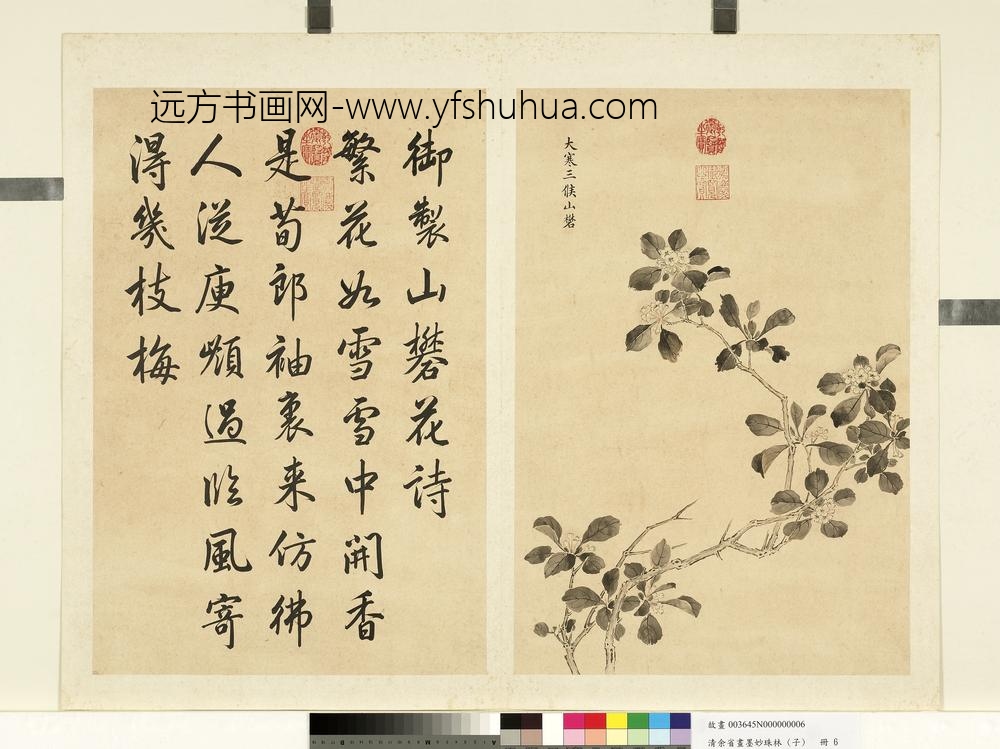 远方书画网-www.yfshuhua.com
大寒三候山礬
御製山礬花詩
繁花如雪雪中開香
是荀郎袖裏来仿彿
人從庾嶺過臨風寄
得幾枝梅
故畫 003645N000000006
清余省畫墨妙珠林（子） 冊 6